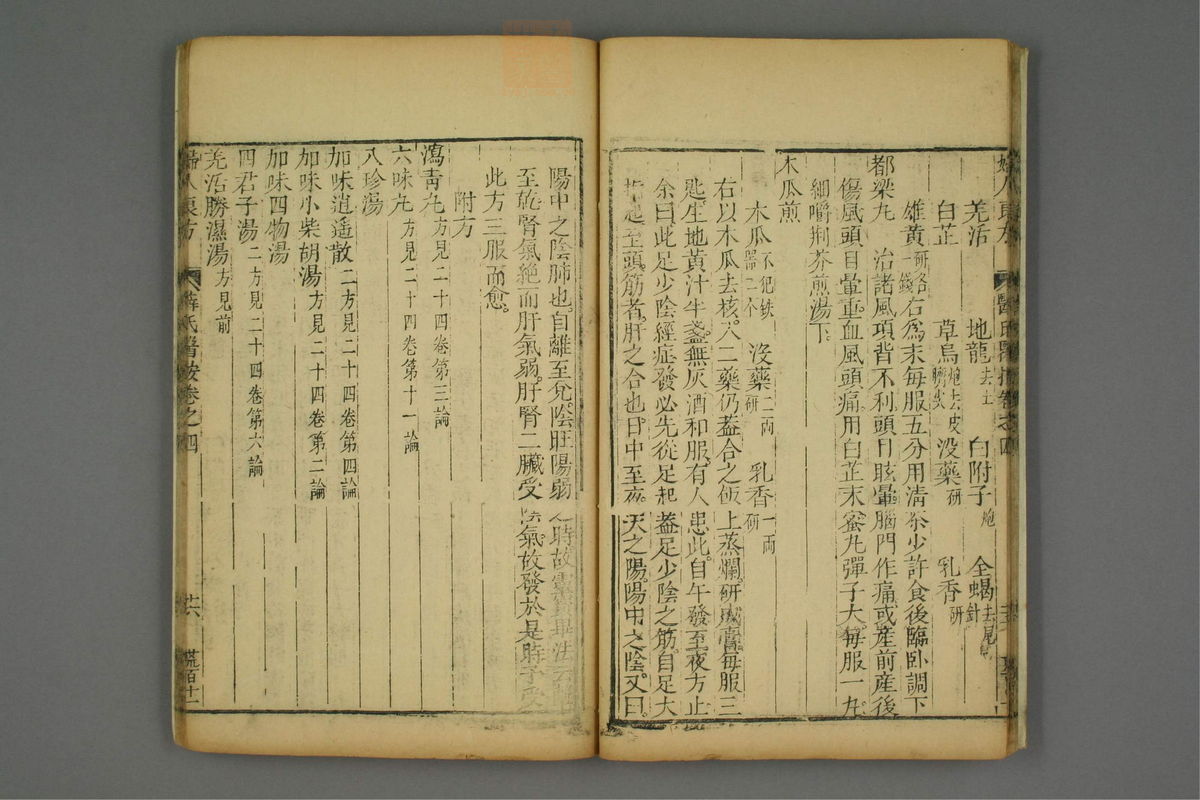 婦人良方 薛氏醫按卷之四
羌活 地龍去土 白附子炮 全蝎去尾針
白芷 草烏炮去皮臍尖 沒藥研 乳香研
雄黃研各一錢 右為末每服五分用清茶少許食後臨卧調下
都梁丸 治諸風項背不利頭目眩暈腦門作痛或産前産後
傷風頭目暈重血風頭痛用白芷末蜜丸彈子大每服一丸
細嚼荆芥煎湯下
木瓜煎
木瓜不犯鉄器二个 沒藥研二兩 乳香研一兩
右以木瓜去核入二藥仍葢合之飯上蒸爛研成膏每服三
匙生地黃汁半盞無灰酒和服有人患此自午發至夜方止
余曰此足少陰經症發必先從足起葢足少陰之筋自足大
指起至頭筋者肝之合也日中至夜天之陽陽中之陰又曰
陽中之陰肺也自離至兌陰旺陽弱之時故靈寳畢法云
至乾腎氣絶而肝氣弱肝腎二臟受陰氣故發於是時予授
此方三服而愈
附方
瀉青丸方見二十四卷第三論
六味丸方見二十四卷第十一論
八珍湯
加味逍遥散二方見二十四卷第四論
加味小柴胡湯方見二十四卷第二論
加味四物湯
四君子湯二方見二十四卷第六論
羌活勝濕湯方見前
婦人良方 薛氏醫按卷之四 共 荒百十一